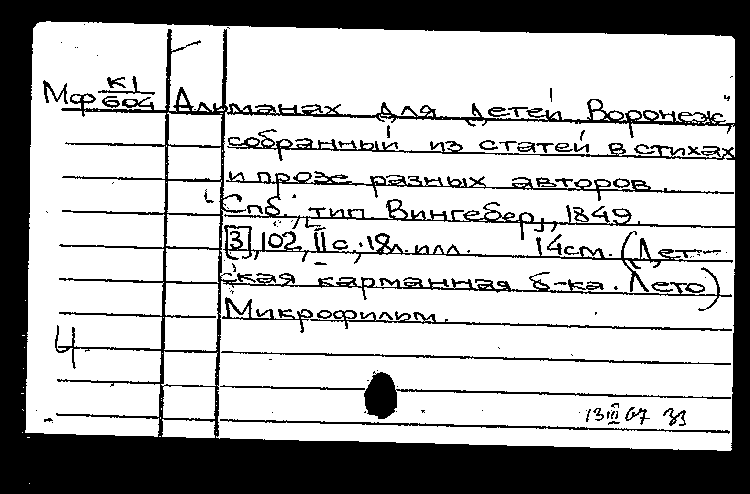 Мф К1/604 Альманах для детей „Воронеж“,
собранный из статей в стихах
и прозе разных авторов.
Спб., тип. Вингебер, 1849.
[3], 102, II с.; 18 л. илл. 14 см. (Дет-
ская карманная б-ка. Лето)
Микрофильм.
4
13 III 67